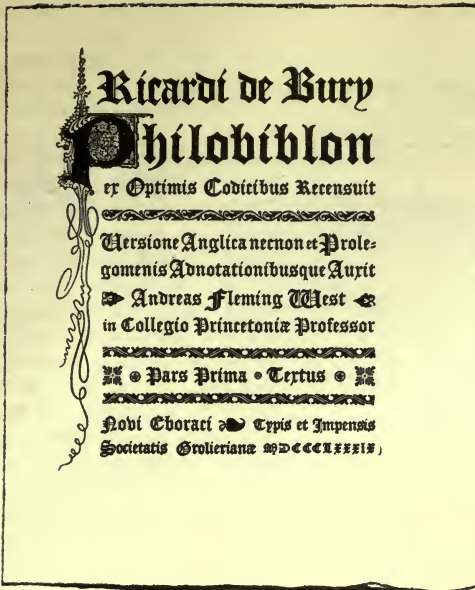 Ricardi de Bury
Philobiblon
ex Optimis Codicibus Recensuit
Versione Anglica necnon et Prole-
gomenis Adnotationibusque Auxit
Andreas Fleming West
in Collegio Princetoniæ Professor
Pars Prima • Textus
Novi Eboraci Typis et Impensis
Societatis Grolierianæ MDCCCLXXXIX